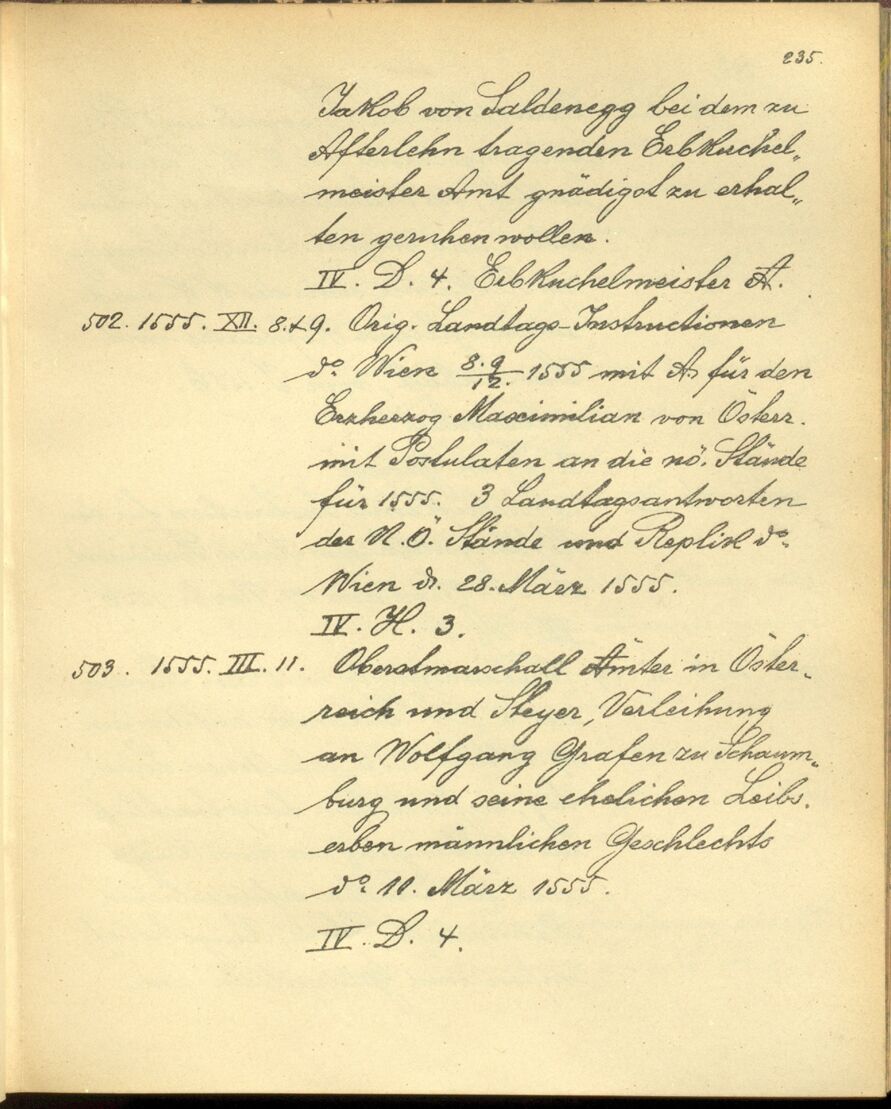 235.
Jakob von Saldenegg bei dem zu
Afterlehn tragenden Erbkuchel„
meister Amt gnädigst zu erhal„
ten geruhen wollen.
IV. D. 4. Erbkuchelmeister A.
502. 1555. XII. 8. & 9. Orig. Landtags-Instructionen
do. Wien 8.9/12. 1555 mit A. für den
Erzherzog Maximilian von Österr.
mit Postulaten an die nö. Stände
für 1555. 3 Landtagsantworten
der N.Ö. Stände und Replik do.
Wien d. 28. März 1555.
IV. H. 3.
503. 1555. III. 11. Oberstmarschall Ämter in Öster„
reich und Steyer, Verleihung
an Wolfgang Grafen zu Schaum„
burg und seine ehelichen Leibs.
erben männlichen Geschlechts
do. 11. März 1555.
IV. D. 4.